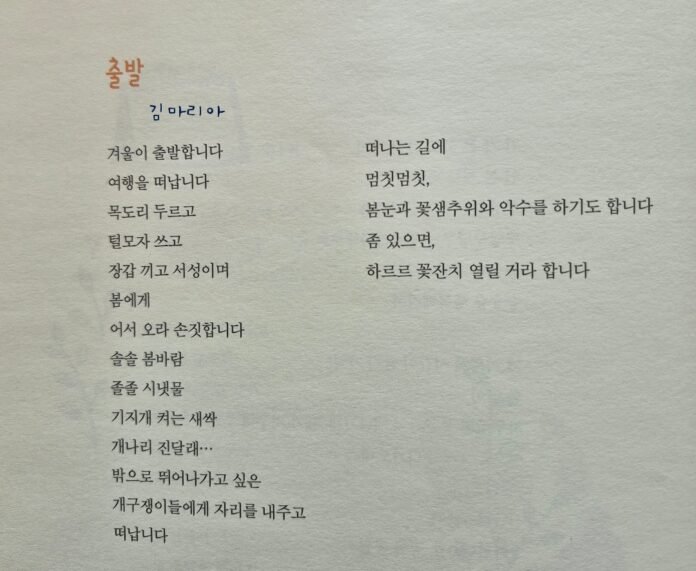 출발
김마리아
겨울이 출발합니다
여행을 떠납니다
목도리 두르고
털모자 쓰고
장갑 끼고 서성이며
봄에게
어서 오라 손짓합니다
솔솔 봄바람
졸졸 시냇물
기지개 켜는 새싹
개나리 진달래…
밖으로 뛰어나가고 싶은
개구쟁이들에게 자리를 내주고
떠납니다
떠나는 길에
멈칫멈칫,
봄눈과 꽃샘추위와 악수를 하기도 합니다
좀 있으면,
하르르 꽃잔치 열릴 거라 합니다